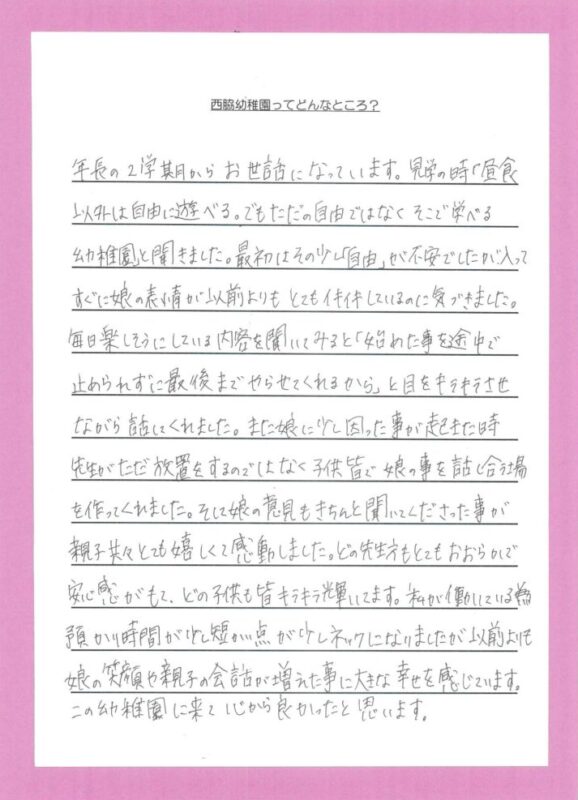 西脇幼稚園ってどんなところ？
年長の2学期からお世話になっています。見学の時「昼食
以外は自由に遊べる。でもただの自由ではなくそこで学べる
幼稚園」と聞きました。最初はその少し「自由」が不安でしたが入って
すぐに娘の表情が以前よりもとてもイキイキしているのに気づきました。
毎日楽しそうにしている内容を聞いてみると「始めた事を途中で
止められずに最後までやらせてくれるから」と目をキラキラさせ
ながら話してくれました。また娘に少し困った事が起きた時
先生がただ放置をするのではなく子供皆で娘の事を話し合う場
を作ってくれました。そして娘の意見もきちんと聞いてくださった事が
親子共々とても嬉しくて感動しました。どの先生方もとてもおおらかで
安心感がもて、どの子供も皆キラキラ輝いてます。私が働いている為
預かり時間が少し短かい点が少しネックになりましたが以前よりも
娘の笑顔や親子の会話が増えた事に大きな幸せを感じています。
この幼稚園に来て心から良かったと思います。